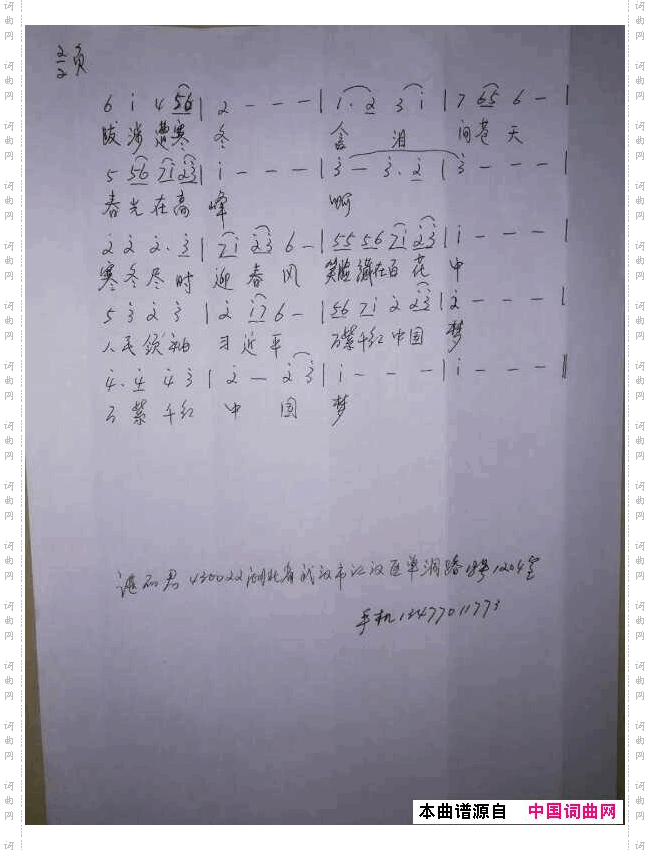 2/2页
6 i 4 56 | 2 - - - | 1· 2 3 i | 7 65 6 - |
跋涉遭寒 冬 含 泪 问苍天
5 56 7i 2̇3̇ | i - - - | 3̇ - 3̇· 2̇ | 3̇ - - - |
春光在高 峰 啊
2̇ 2̇ 2̇· 3̇ | 7i 2̇3̇ 6 - | 55 56 7i 2̇3̇ | i - - - |
寒冬尽时 迎春风 笑脸藏在百花 中
5 3̇ 2̇ 3̇ | 2̇ i7 6 - | 56 7i 2̇ 2̇3̇ | 2̇ - - - |
人民领袖 习近平 万紫千红中国 梦
4̇· 4̇ 4̇ 3̇ | 2̇ - 2̇ 3̇ | i - - - | i - - - ‖
万紫千红 中 国 梦
430022湖北省武汉市江汉区单洞路 1204室
手机13477011773
本曲谱源自 中国词曲网